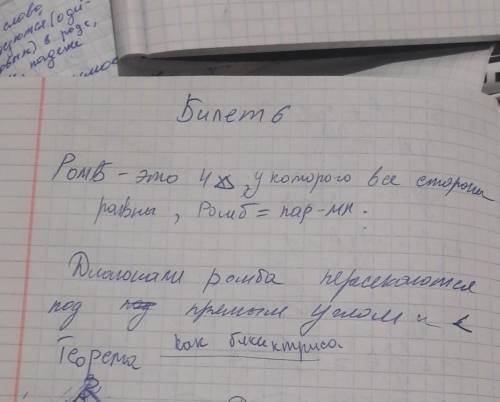 слово,
Билет 6
Ромб - это 4, у которого все стороны
равны, Ромб = пар-мм.
Диагонали ромба пересекаются
под под прямым углом и
Теорема как биссектриса